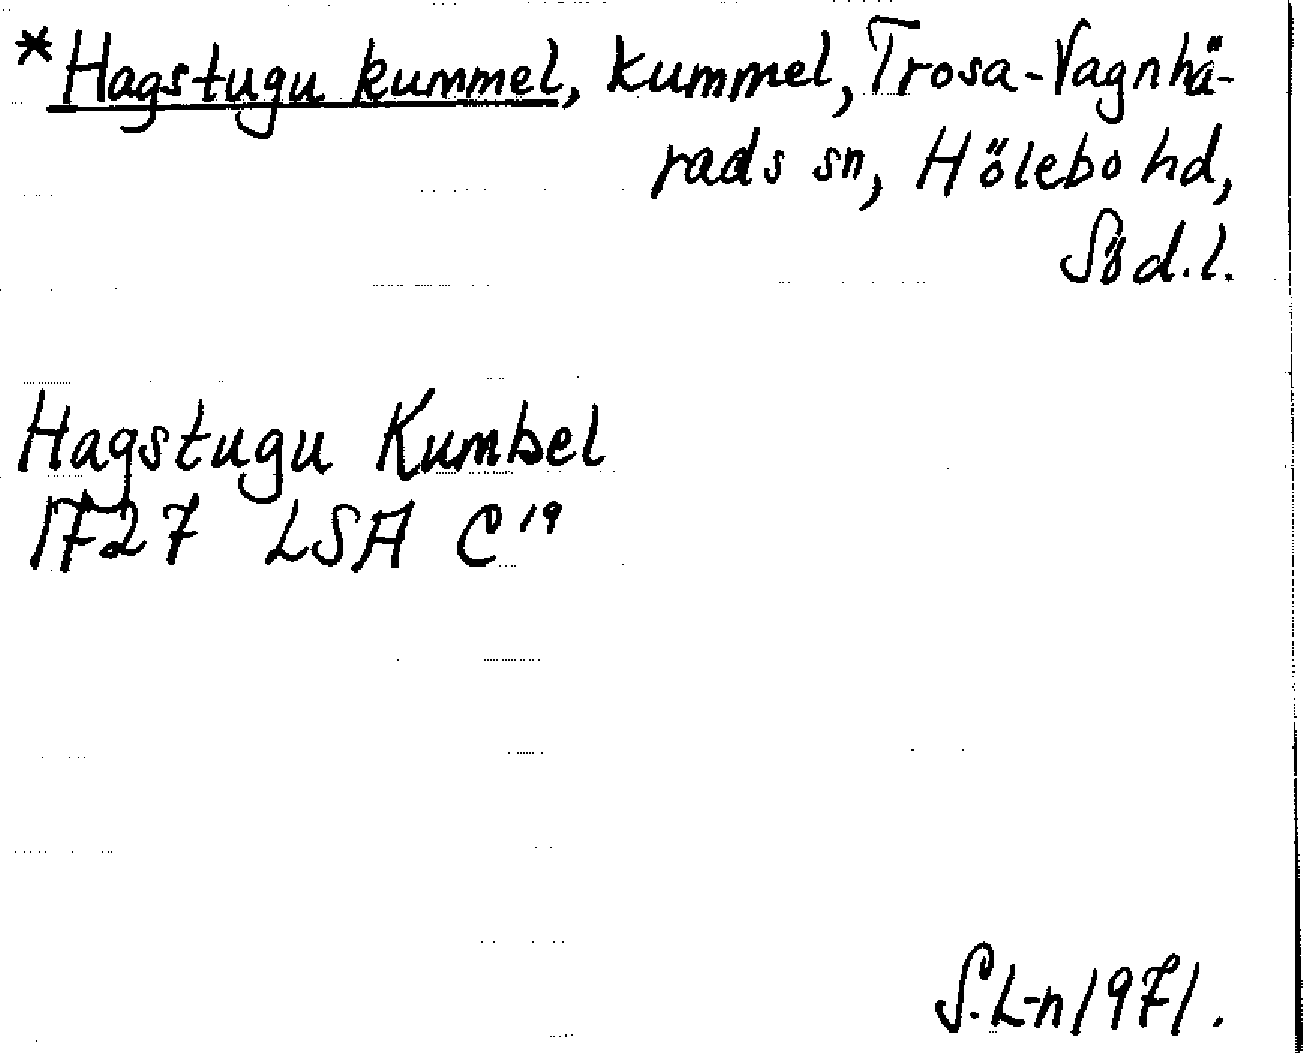 *Hagstugu kummel, kummel, Trosa-Vagnhä-
rads sn, Hölebo hd,
Söd.l.
Hagstugu Kumbel
1727 LSA C¹⁹
S.L-n 1971.